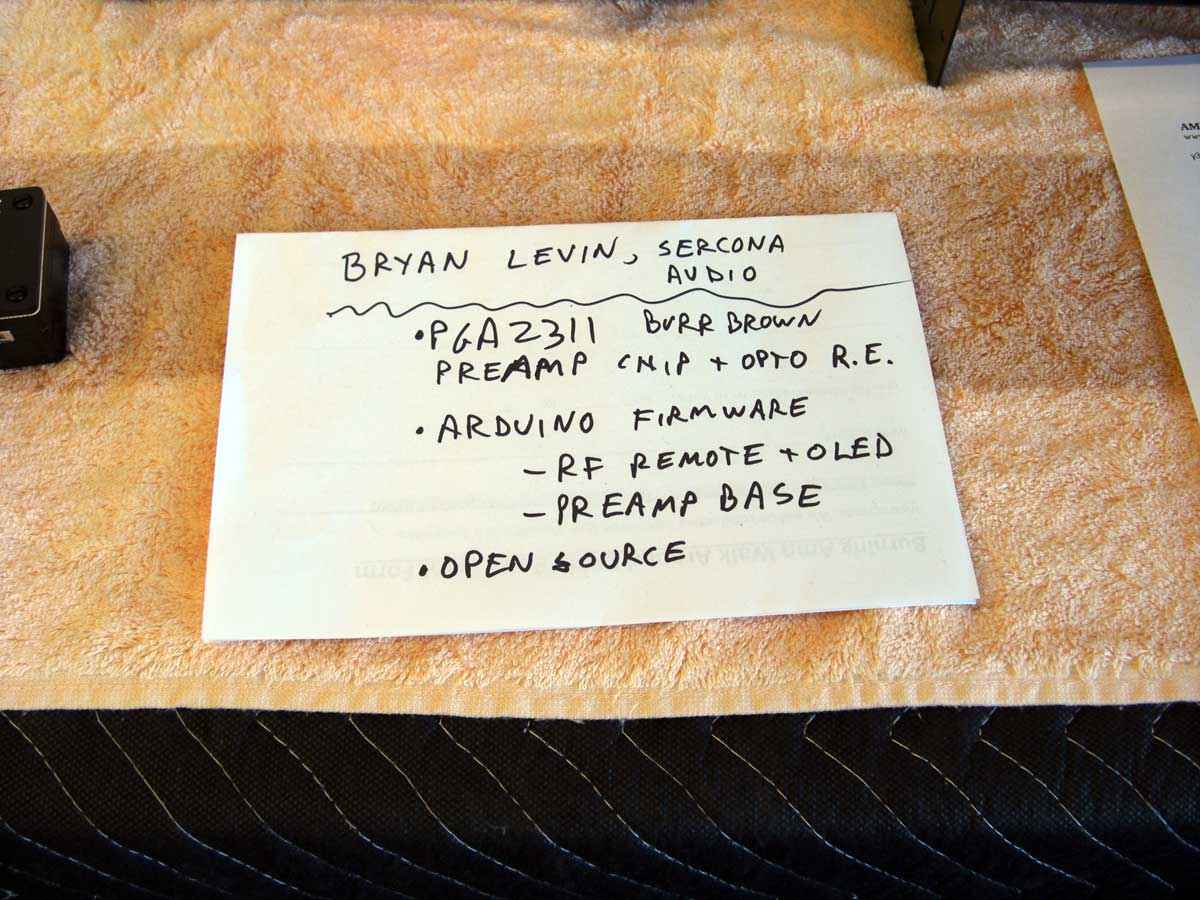 BRYAN LEVIN, SERCONA
AUDIO
•PGA2311 BURR BROWN
PREAMP CHIP + OPTO R.E.
• ARDUINO FIRMWARE
- RF REMOTE + OLED
- PREAMP BASE
• OPEN SOURCE
Burning Amp Walk
AM